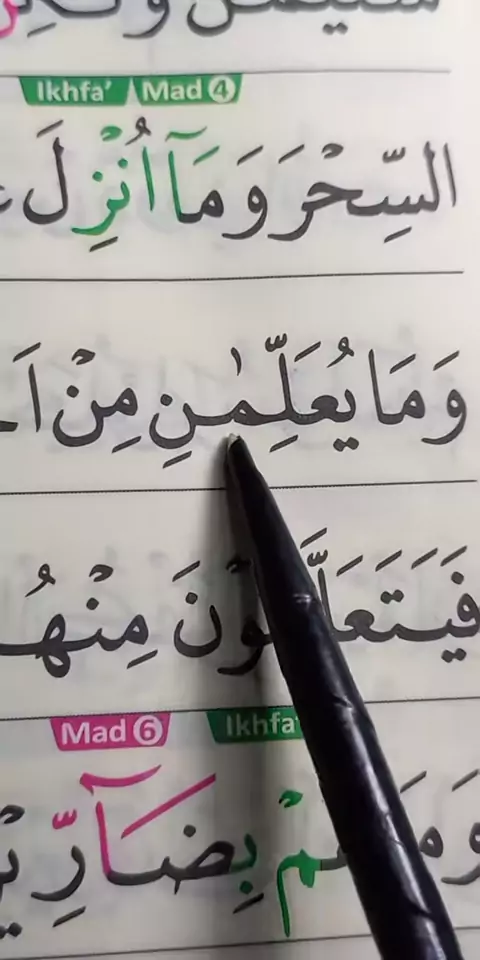 Ikhfa' Mad 4
السِّحْرَ وَ مَآ اُنْزِلَ
وَ مَا يُعَلِّمٰنِ مِنْ اَ
فَيَتَعَلَّمُوْنَ مِنْهُ
Mad 6 Ikhfa'
بِضَآرِّيْ